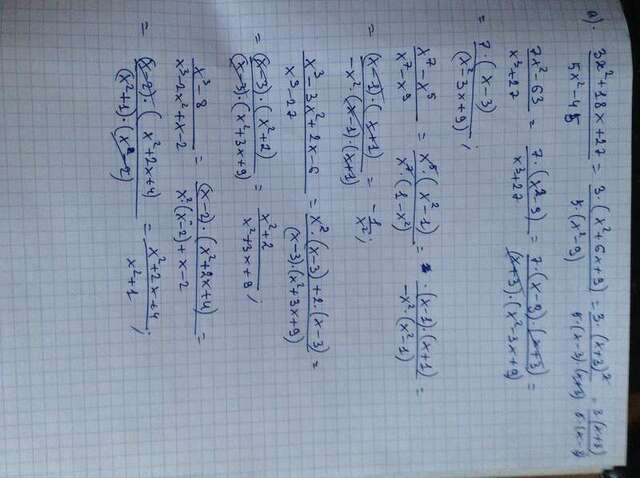 а). (3x²+18x+27)/(5x²-45) = 3·(x²+6x+9)/5·(x²-9) = 3·(x+3)²/5(x-3)(x+3) = 3(x+3)/5(x-3)
(7x²-63)/(x³+27) = 7·(x²-9)/(x³+27) = 7·(x-3)·(x+3)/(x+3)·(x²-3x+9) =
= 7·(x-3)/(x²-3x+9);
(x⁷-x⁵)/(x⁷-x⁹) = x⁵·(x²-1)/x⁷·(1-x²) = (x-1)·(x+1)/-x²(x²-1) =
= (x-1)·(x+1)/-x²·(x-1)·(x+1) = -1/x²;
(x³-3x²+2x-6)/(x³-27) = (x²·(x-3)+2·(x-3))/(x-3)·(x²+3x+9) =
= (x-3)·(x²+2)/(x-3)·(x²+3x+9) = (x²+2)/(x²+3x+9);
(x³-8)/(x³-2x²+x-2) = (x-2)·(x²+2x+4)/x²·(x-2)+x-2 =
= (x-2)·(x²+2x+4)/(x²+1)·(x-2) = (x²+2x+4)/(x²+1);